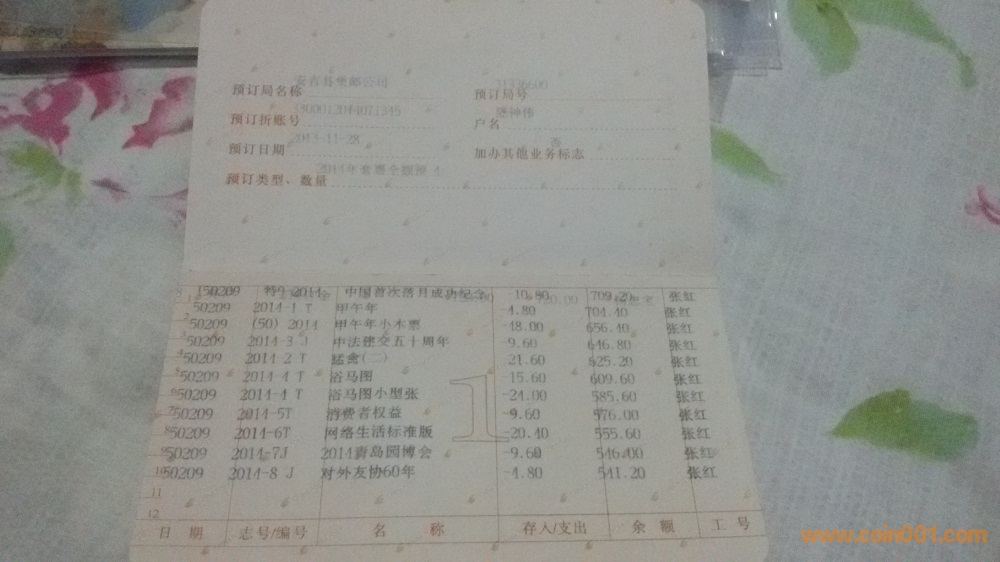 预订局名称 安吉县集邮公司 预订局号
预订折账号 户名
预订日期 2013-11-28 加办其他业务标志 否
预订类型、数量
150209 特9-2014 中国首次落月成功纪念 -10.80 709.20 张红
50209 2014-1 T 甲午年 -4.80 704.40 张红
50209 (50) 2014 甲午年小本票 -48.00 656.40 张红
50209 2014-3 J 中法建交五十周年 -9.60 646.80 张红
50209 2014-2 T 猛禽(二) -21.60 625.20 张红
50209 2014-4 T 浴马图 -15.60 609.60 张红
50209 2014-4 T 浴马图小型张 -24.00 585.60 张红
50209 2014-5T 消费者权益 -9.60 576.00 张红
50209 2014-6T 网络生活标准版 -20.40 555.60 张红
50209 2014-7J 2014青岛园博会 -9.60 546.00 张红
50209 2014-8 J 对外友协60年 -4.80 541.20 张红
11
12
1
日 期 志号/编号 名 称 存入/支出 余 额 工 号
www.coin001.com